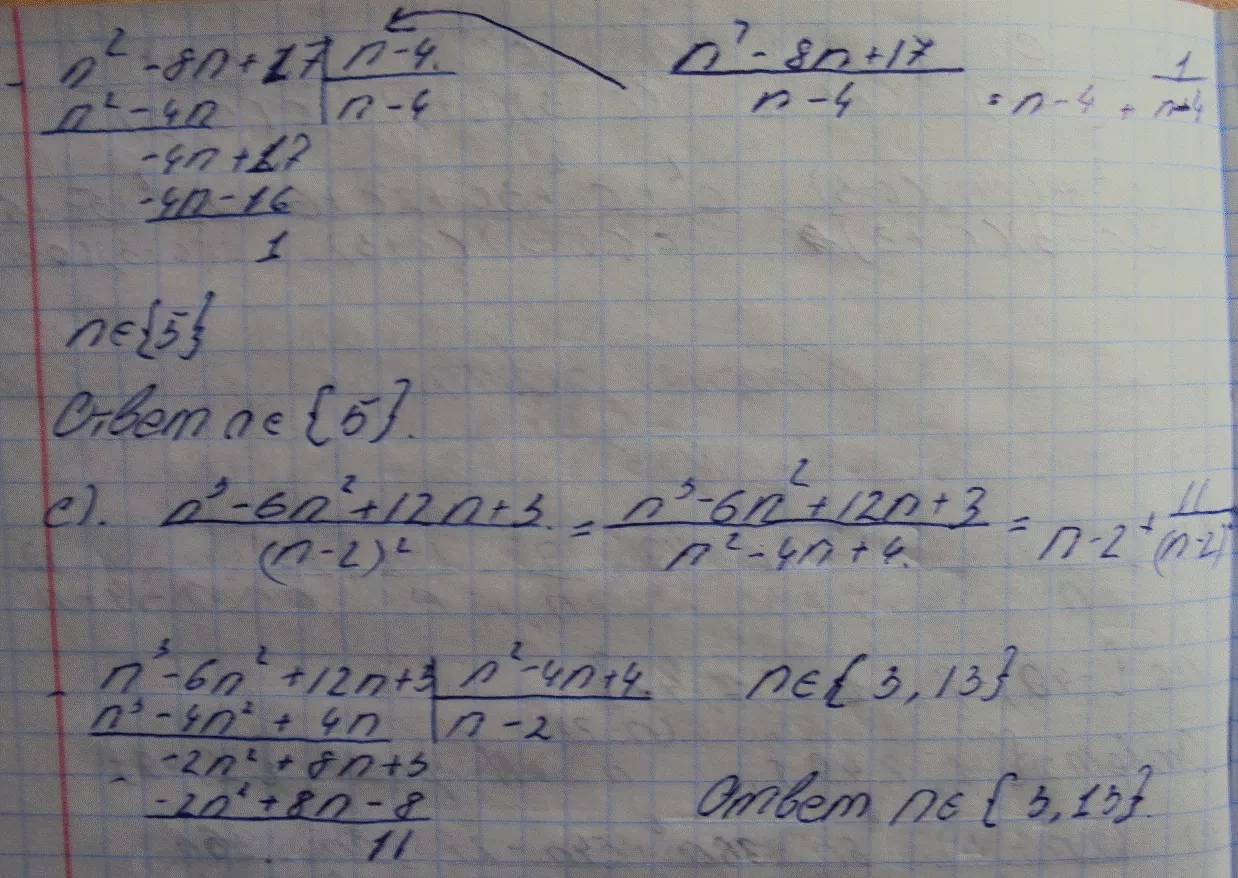 n² - 8n + 17 | n - 4.
n² - 4n | n - 4
-4n + 17
-4n - 16
1
n² - 8n + 17 / n - 4 = n - 4 + 1 / n - 4
n ∈ {5}
Ответ n ∈ {5}.
c). n³ - 6n² + 12n + 3 / (n - 2)² = n³ - 6n² + 12n + 3 / n² - 4n + 4 = n - 2 + 11 / (n - 2)
n³ - 6n² + 12n + 3 | n² - 4n + 4.
n³ - 4n² + 4n | n - 2
-2n² + 8n + 3
-2n² + 8n - 8
11
n ∈ {3, 13}
Ответ n ∈ {3, 13}.